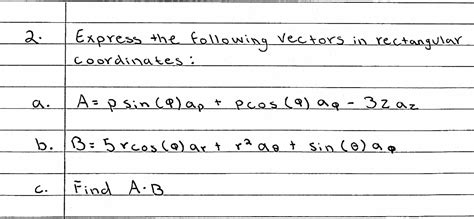 2. Express the following vectors in rectangular
coordinates:
a. A = ρ sin(φ) aρ + ρ cos(φ) aφ - 3z az
b. B = 5 r cos(φ) ar + r² aθ + sin(θ) aφ
c. Find A·B